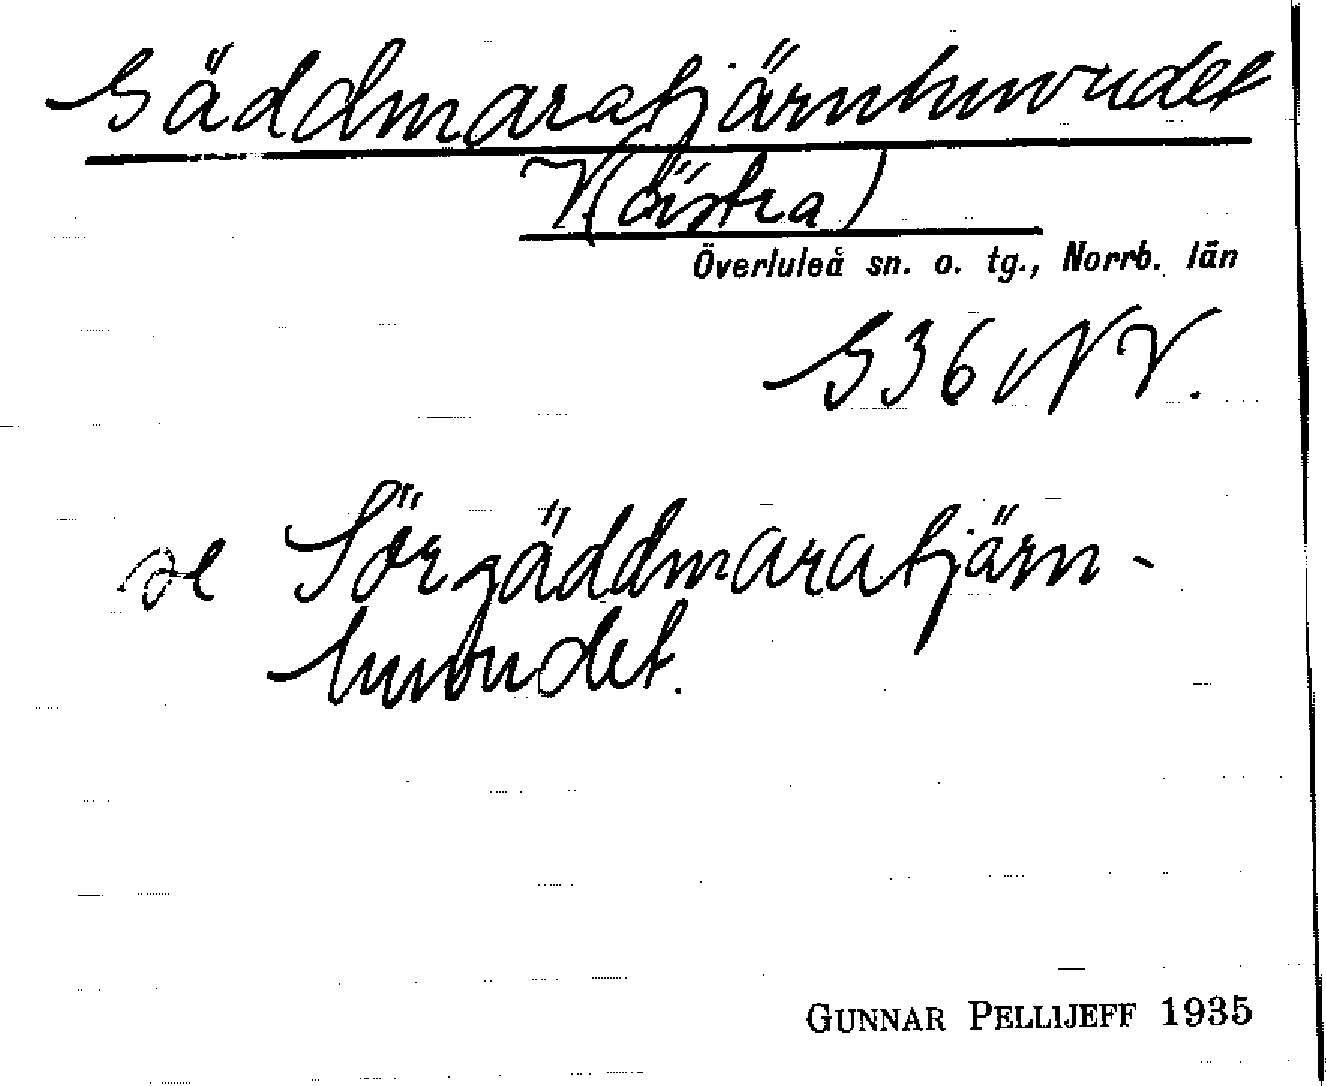 Gäddmaratjärnhuvudet
V(östra)
Överluleå sn. o. tg., Norrb. län
G 36 NV.
se Sörgäddmaratjärn-
huvudet.
GUNNAR PELLIJEFF 1935